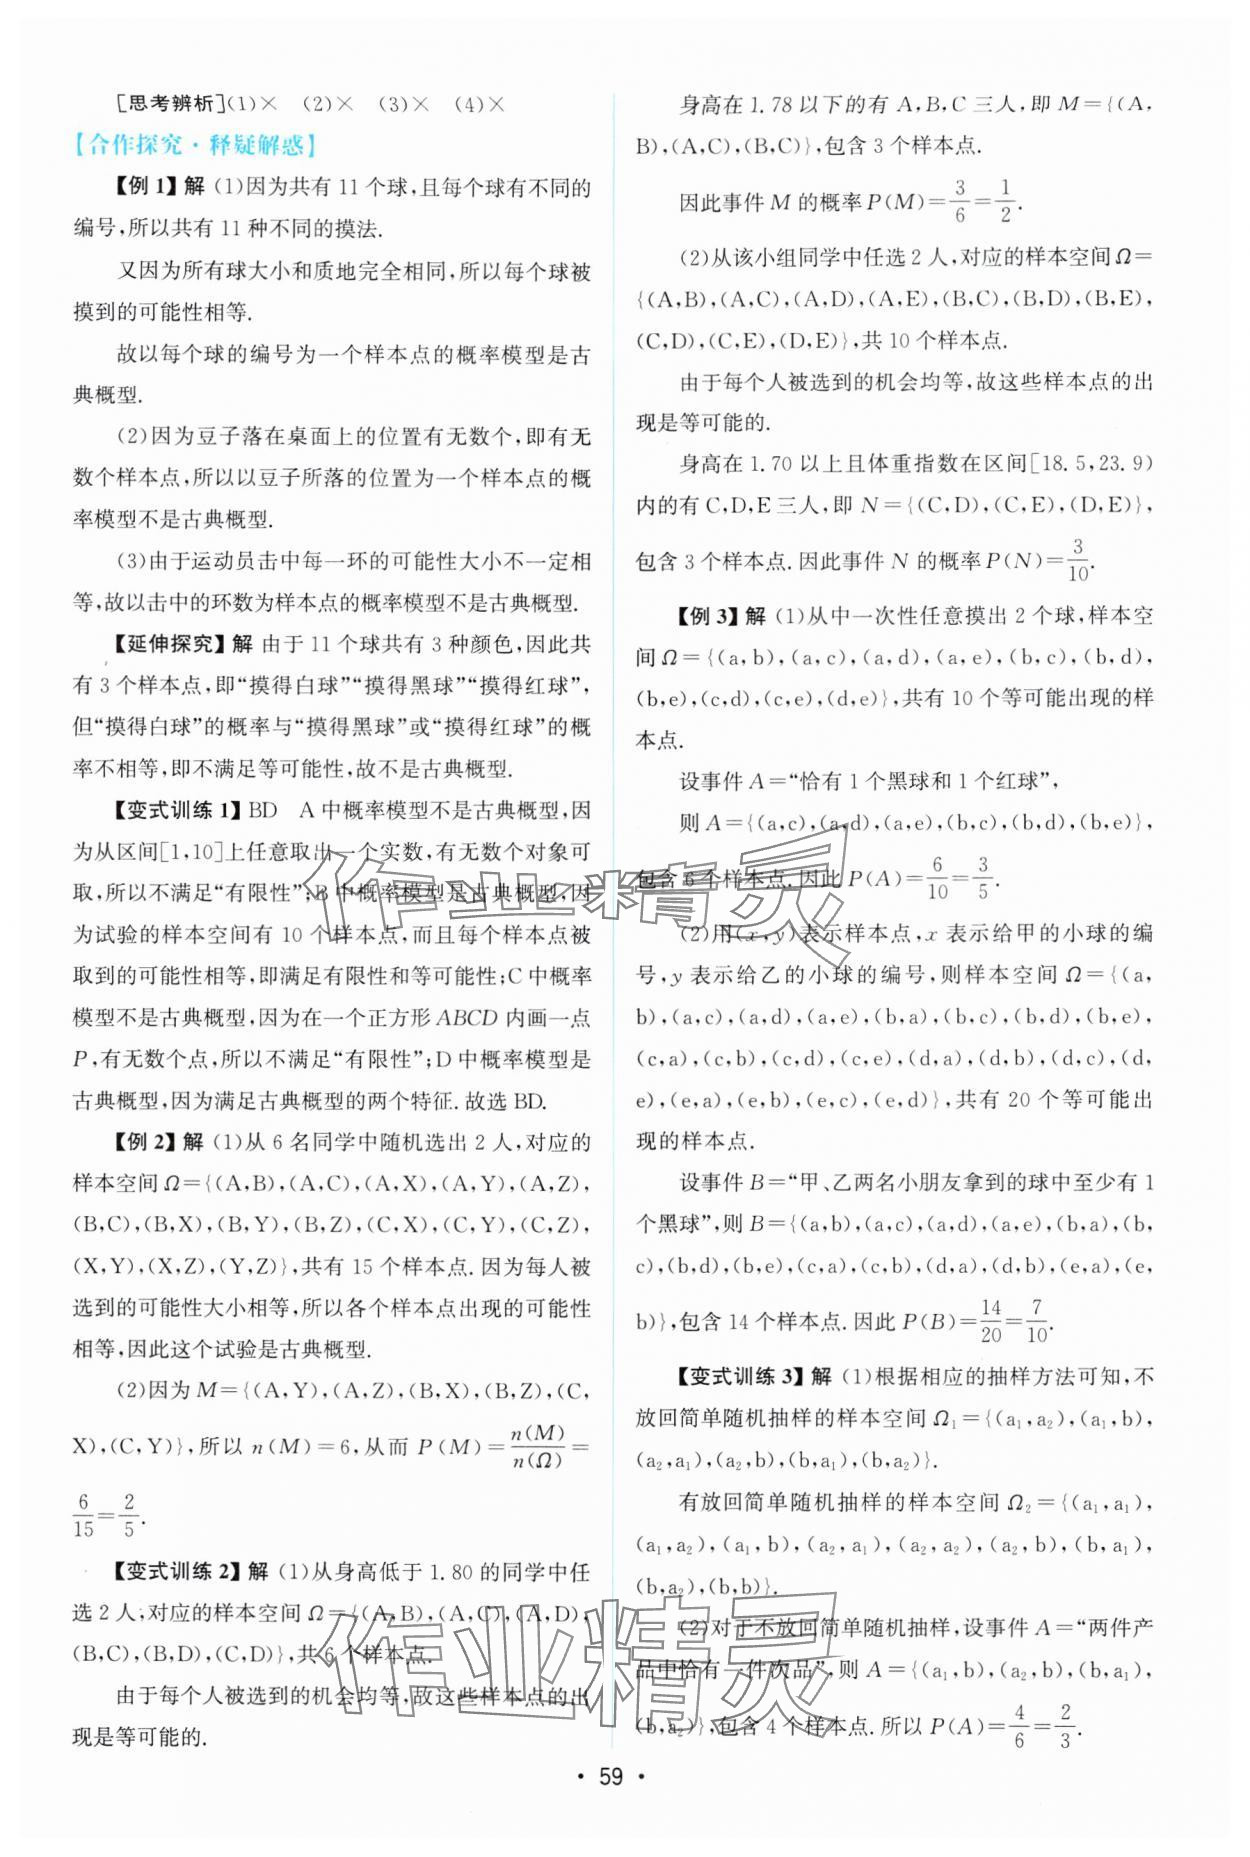 [思考辨析](1)× (2)× (3)× (4)×
【合作探究·释疑解惑】
【例1】解 (1)因为共有11个球,且每个球有不同的
编号,所以共有11种不同的摸法.
又因为所有球大小和质地完全相同,所以每个球被
摸到的可能性相等.
故以每个球的编号为一个样本点的概率模型是古
典概型.
(2)因为豆子落在桌面上的位置有无数个,即有无
数个样本点,所以以豆子所落的位置为一个样本点的概
率模型不是古典概型.
(3)由于运动员击中每一环的可能性大小不一定相
等,故以击中的环数为样本点的概率模型不是古典概型.
【延伸探究】解 由于11个球共有3种颜色,因此共
有3个样本点,即“摸得白球”“摸得黑球”“摸得红球”,
但“摸得白球”的概率与“摸得黑球”或“摸得红球”的概
率不相等,即不满足等可能性,故不是古典概型.
【变式训练1】BD A中概率模型不是古典概型,因
为从区间[1,10]上任意取出一个实数,有无数个对象可
取,所以不满足“有限性”;B中概率模型是古典概型,因
为试验的样本空间有10个样本点,而且每个样本点被
取到的可能性相等,即满足有限性和等可能性;C中概率
模型不是古典概型,因为在一个正方形ABCD内画一点
P,有无数个点,所以不满足“有限性”;D中概率模型是
古典概型,因为满足古典概型的两个特征.故选BD.
【例2】解 (1)从6名同学中随机选出2人,对应的
样本空间Ω={(A,B),(A,C),(A,X),(A,Y),(A,Z),
(B,C),(B,X),(B,Y),(B,Z),(C,X),(C,Y),(C,Z),
(X,Y),(X,Z),(Y,Z)},共有15个样本点.因为每人被
选到的可能性大小相等,所以各个样本点出现的可能性
相等,因此这个试验是古典概型.
(2)因为M={(A,Y),(A,Z),(B,X),(B,Z),(C,
X),(C,Y)},所以n(M)=6,从而P(M)=n(M)/n(Ω)=
6/15=2/5.
【变式训练2】解 (1)从身高低于1.80的同学中任
选2人,对应的样本空间Ω={(A,B),(A,C),(A,D),
(B,C),(B,D),(C,D)},共6个样本点.
由于每个人被选到的机会均等,故这些样本点的出
现是等可能的.
身高在1.78以下的有A,B,C三人,即M={(A,
B),(A,C),(B,C)},包含3个样本点.
因此事件M的概率P(M)=3/6=1/2.
(2)从该小组同学中任选2人,对应的样本空间Ω=
{(A,B),(A,C),(A,D),(A,E),(B,C),(B,D),(B,E),
(C,D),(C,E),(D,E)},共10个样本点.
由于每个人被选到的机会均等,故这些样本点的出
现是等可能的.
身高在1.70以上且体重指数在区间[18.5,23.9)
内的有C,D,E三人,即N={(C,D),(C,E),(D,E)},
包含3个样本点.因此事件N的概率P(N)=3/10.
【例3】解 (1)从中一次性任意摸出2个球,样本空
间Ω={(a,b),(a,c),(a,d),(a,e),(b,c),(b,d),
(b,e),(c,d),(c,e),(d,e)},共有10个等可能出现的样
本点.
设事件A=“恰有1个黑球和1个红球”,
则A={(a,c),(a,d),(a,e),(b,c),(b,d),(b,e)},
包含6个样本点.因此P(A)=6/10=3/5.
(2)用(x,y)表示样本点,x表示给甲的小球的编
号,y表示给乙的小球的编号,则样本空间Ω={(a,
b),(a,c),(a,d),(a,e),(b,a),(b,c),(b,d),(b,e),
(c,a),(c,b),(c,d),(c,e),(d,a),(d,b),(d,c),(d,
e),(e,a),(e,b),(e,c),(e,d)},共有20个等可能出
现的样本点.
设事件B=“甲、乙两名小朋友拿到的球中至少有1
个黑球”,则B={(a,b),(a,c),(a,d),(a,e),(b,a),(b,
c),(b,d),(b,e),(c,a),(c,b),(d,a),(d,b),(e,a),(e,
b)},包含14个样本点.因此P(B)=14/20=7/10.
【变式训练3】解 (1)根据相应的抽样方法可知,不
放回简单随机抽样的样本空间Ω₁={(a₁,a₂),(a₁,b),
(a₂,a₁),(a₂,b),(b,a₁),(b,a₂)}.
有放回简单随机抽样的样本空间Ω₂={(a₁,a₁),
(a₁,a₂),(a₁,b),(a₂,a₁),(a₂,a₂),(a₂,b),(b,a₁),
(b,a₂),(b,b)}.
(2)对于不放回简单随机抽样,设事件A=“两件产
品中恰有一件次品”,则A={(a₁,b),(a₂,b),(b,a₁),
(b,a₂)},包含4个样本点.所以P(A)=4/6=2/3.
·59·
作业精灵
作业精灵